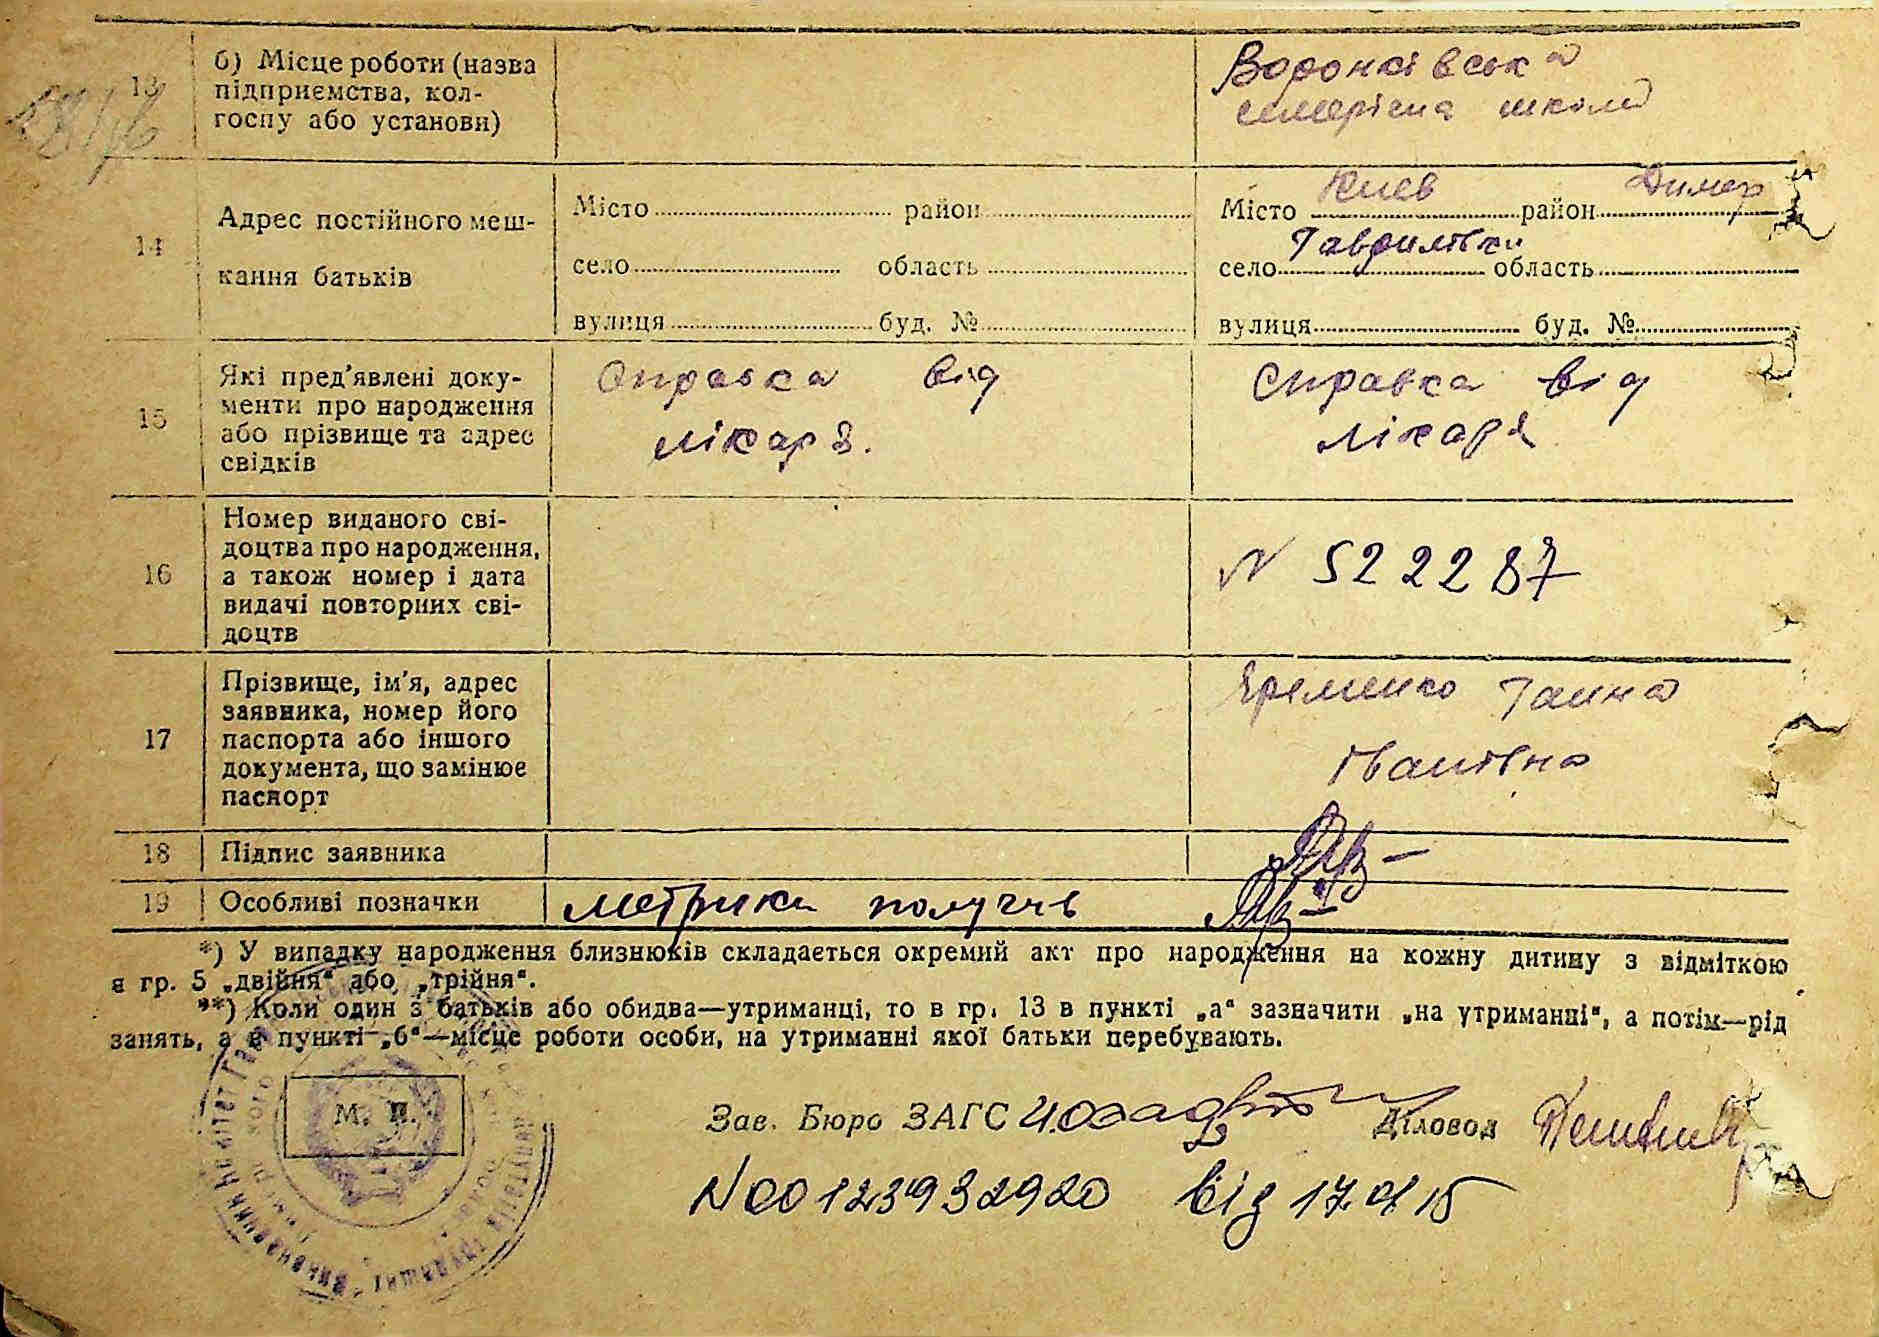 13
б) Місце роботи (назва
підприємства, кол-
госпу або установи)
Воронківська
семерісна школа
14
Адрес постійного меш-
кання батьків
Місто район
село область
вулиця буд. №
Місто Киев район Димер
село Гаврилівка область
вулиця буд. №
15
Які пред'явлені доку-
менти про народження
або прізвище та адрес
свідків
Справка від
лікаря.
Справка від
лікаря
16
Номер виданого сві-
доцтва про народження,
а також номер і дата
видачі повторних сві-
доцтв
N 522287
17
Прізвище, ім'я, адрес
заявника, номер його
паспорта або іншого
документа, що замінює
паспорт
Яременко Ганна
Іванівна
18 Підпис заявника
19 Особливі позначки метрики получив
*) У випадку народження близнюків складається окремий акт про народження на кожну дитину з відміткою
в гр. 5 „двійня“ або „трійня“.
**) Коли один з батьків або обидва—утриманці, то в гр. 13 в пункті „а“ зазначити „на утриманні“, а потім—рід
занять, а в пункті „б“—місце роботи особи, на утриманні якої батьки перебувають.
М. П.
Зав. Бюро ЗАГС Діловод
N00123932920 від 17.01.15